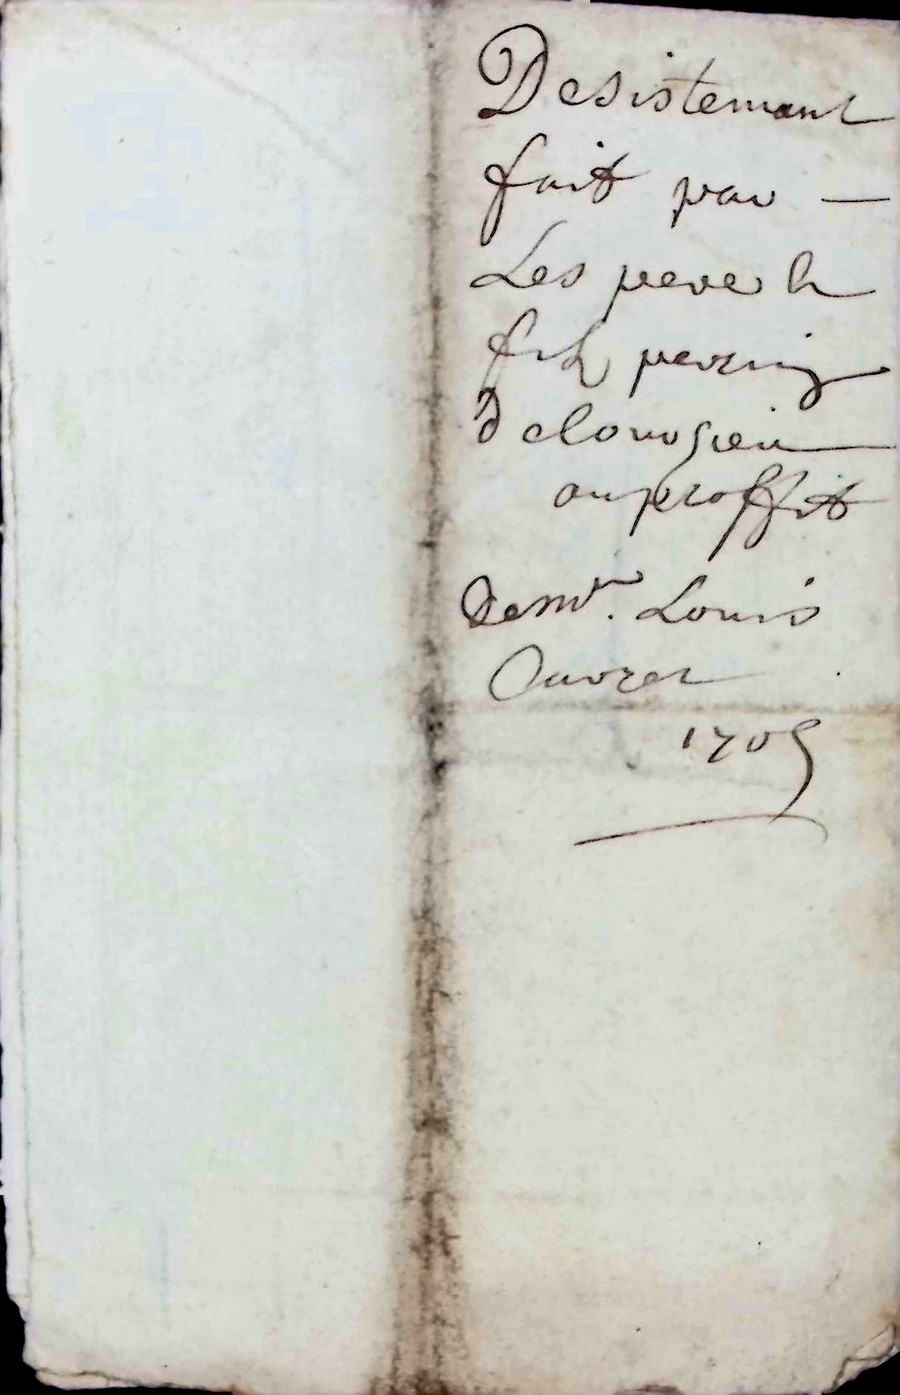 Desistemant
fait par —
Les pere &
filz perrin
De
au proffit
De mr. Louis
Ouvret
1705